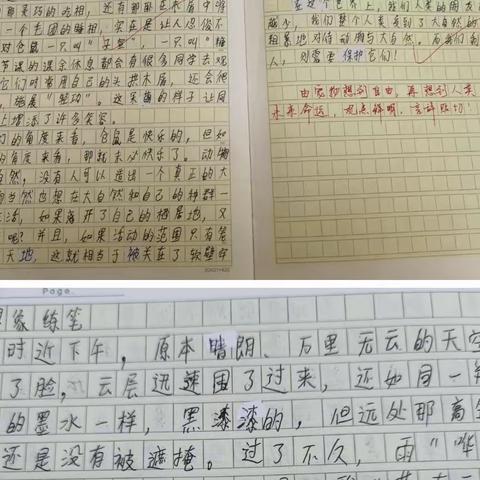 一个毛团的睡相，实在是让人忍俊不
对仓鼠一只叫"子墨"，一只叫"
节课的课余休息都会有很多同学去观
它们时常用自己的头拱木屑，还会他
的样子让同
上增添了许多笑容。
的角度来看，仓鼠是快乐的，但如
的角度来看，那就未必快乐了。动物
自然，没有人可以造出一个真正的大
当然也想在大自然和自己的种群一
生活，如果离开了自己的栖居地，又
呢？并且，如果活动的范围只有笼
天地，这就相当于被关在了
在这个世界上，我们人类的朋友
减少，我们整个人类受到了大自然的
对待动物与大自然。
人，则需要保护它们！
由宠物想到自由，再想到人类
未来命运，观点鲜明，言辞恳切！
Page.
象练笔
时近下午，原本晴朗、万里无云的天空
了脸，云层迅速围了过来，还如同一
的墨水一样，黑漆漆的，但远处那高
还是没有被遮掩。过了不久，雨"哗